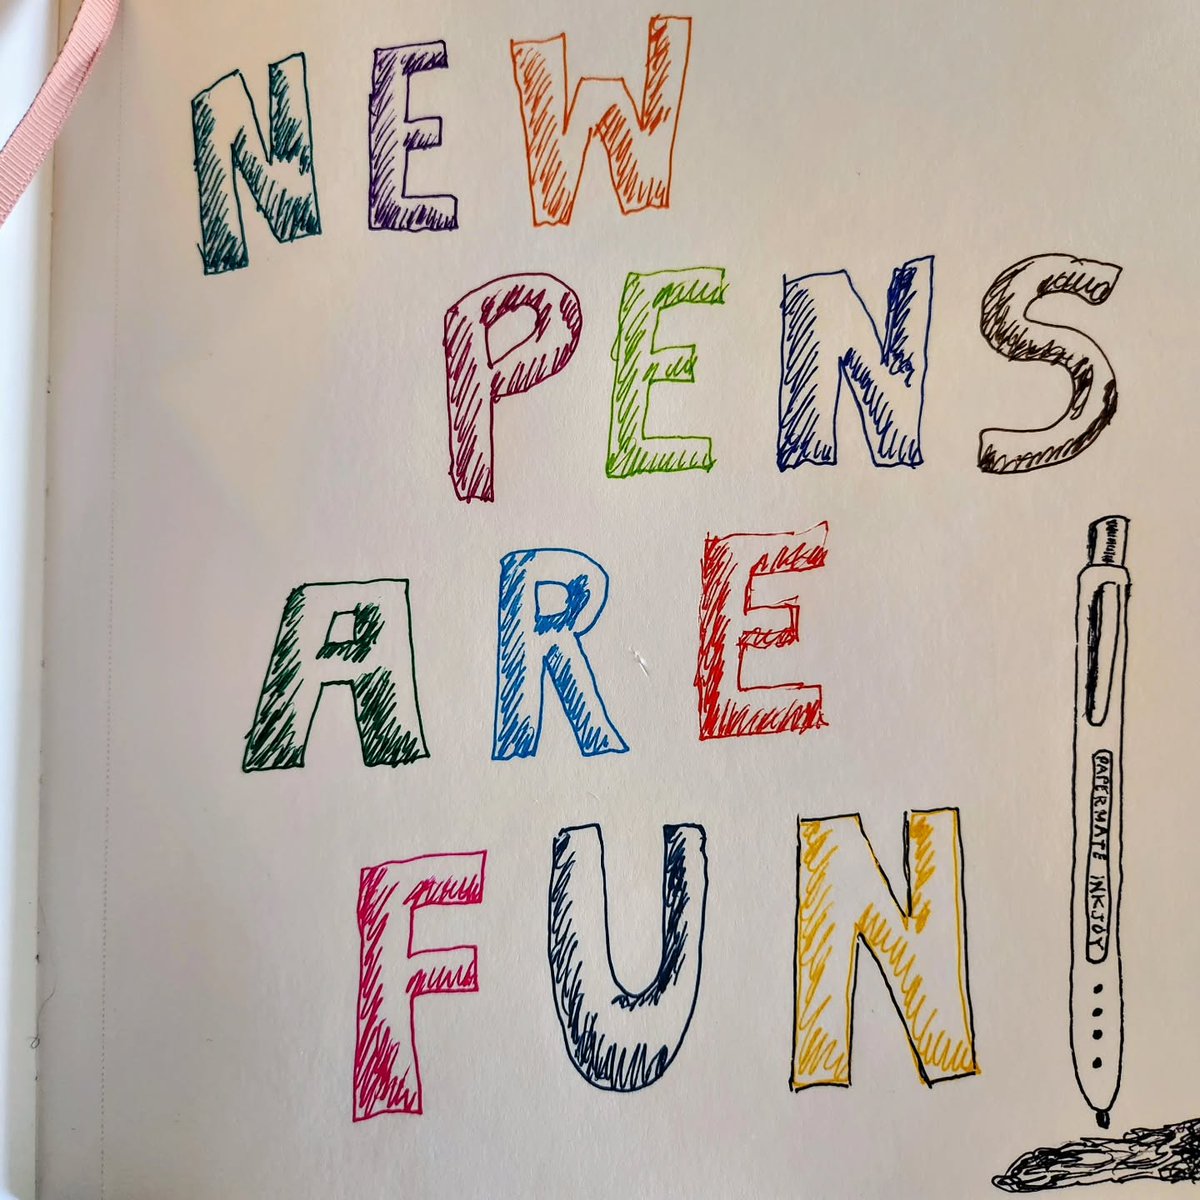 NEW
PENS
ARE
FUN
PAPERMATE INKJOY